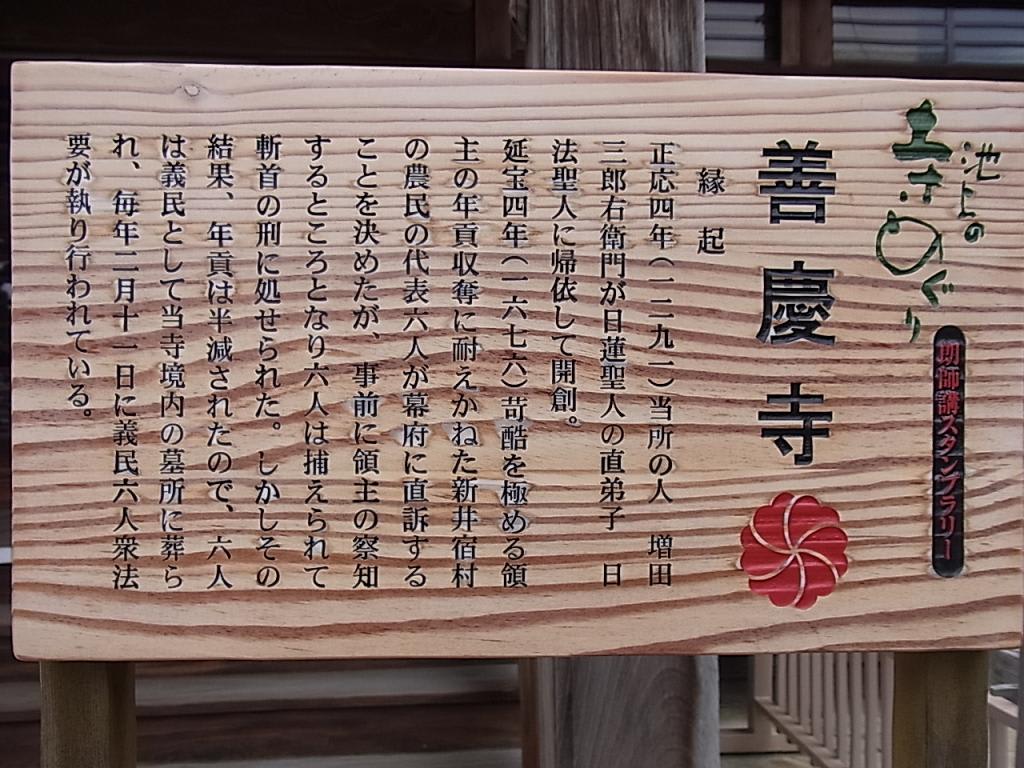 池上の
寺めぐり
朗師講スタンプラリー
善慶寺
縁起
正応四年(一二九一)当所の人　増田
三郎右衛門が日蓮聖人の直弟子　日
法聖人に帰依して開創。
延宝四年(一六七六)苛酷を極める領
主の年貢収奪に耐えかねた新井宿村
の農民の代表六人が幕府に直訴する
ことを決めたが、事前に領主の察知
するところとなり六人は捕えられて
斬首の刑に処せられた。しかしその
結果、年貢は半減されたので、六人
は義民として当寺境内の墓所に葬ら
れ、毎年二月十一日に義民六人衆法
要が執り行われている。